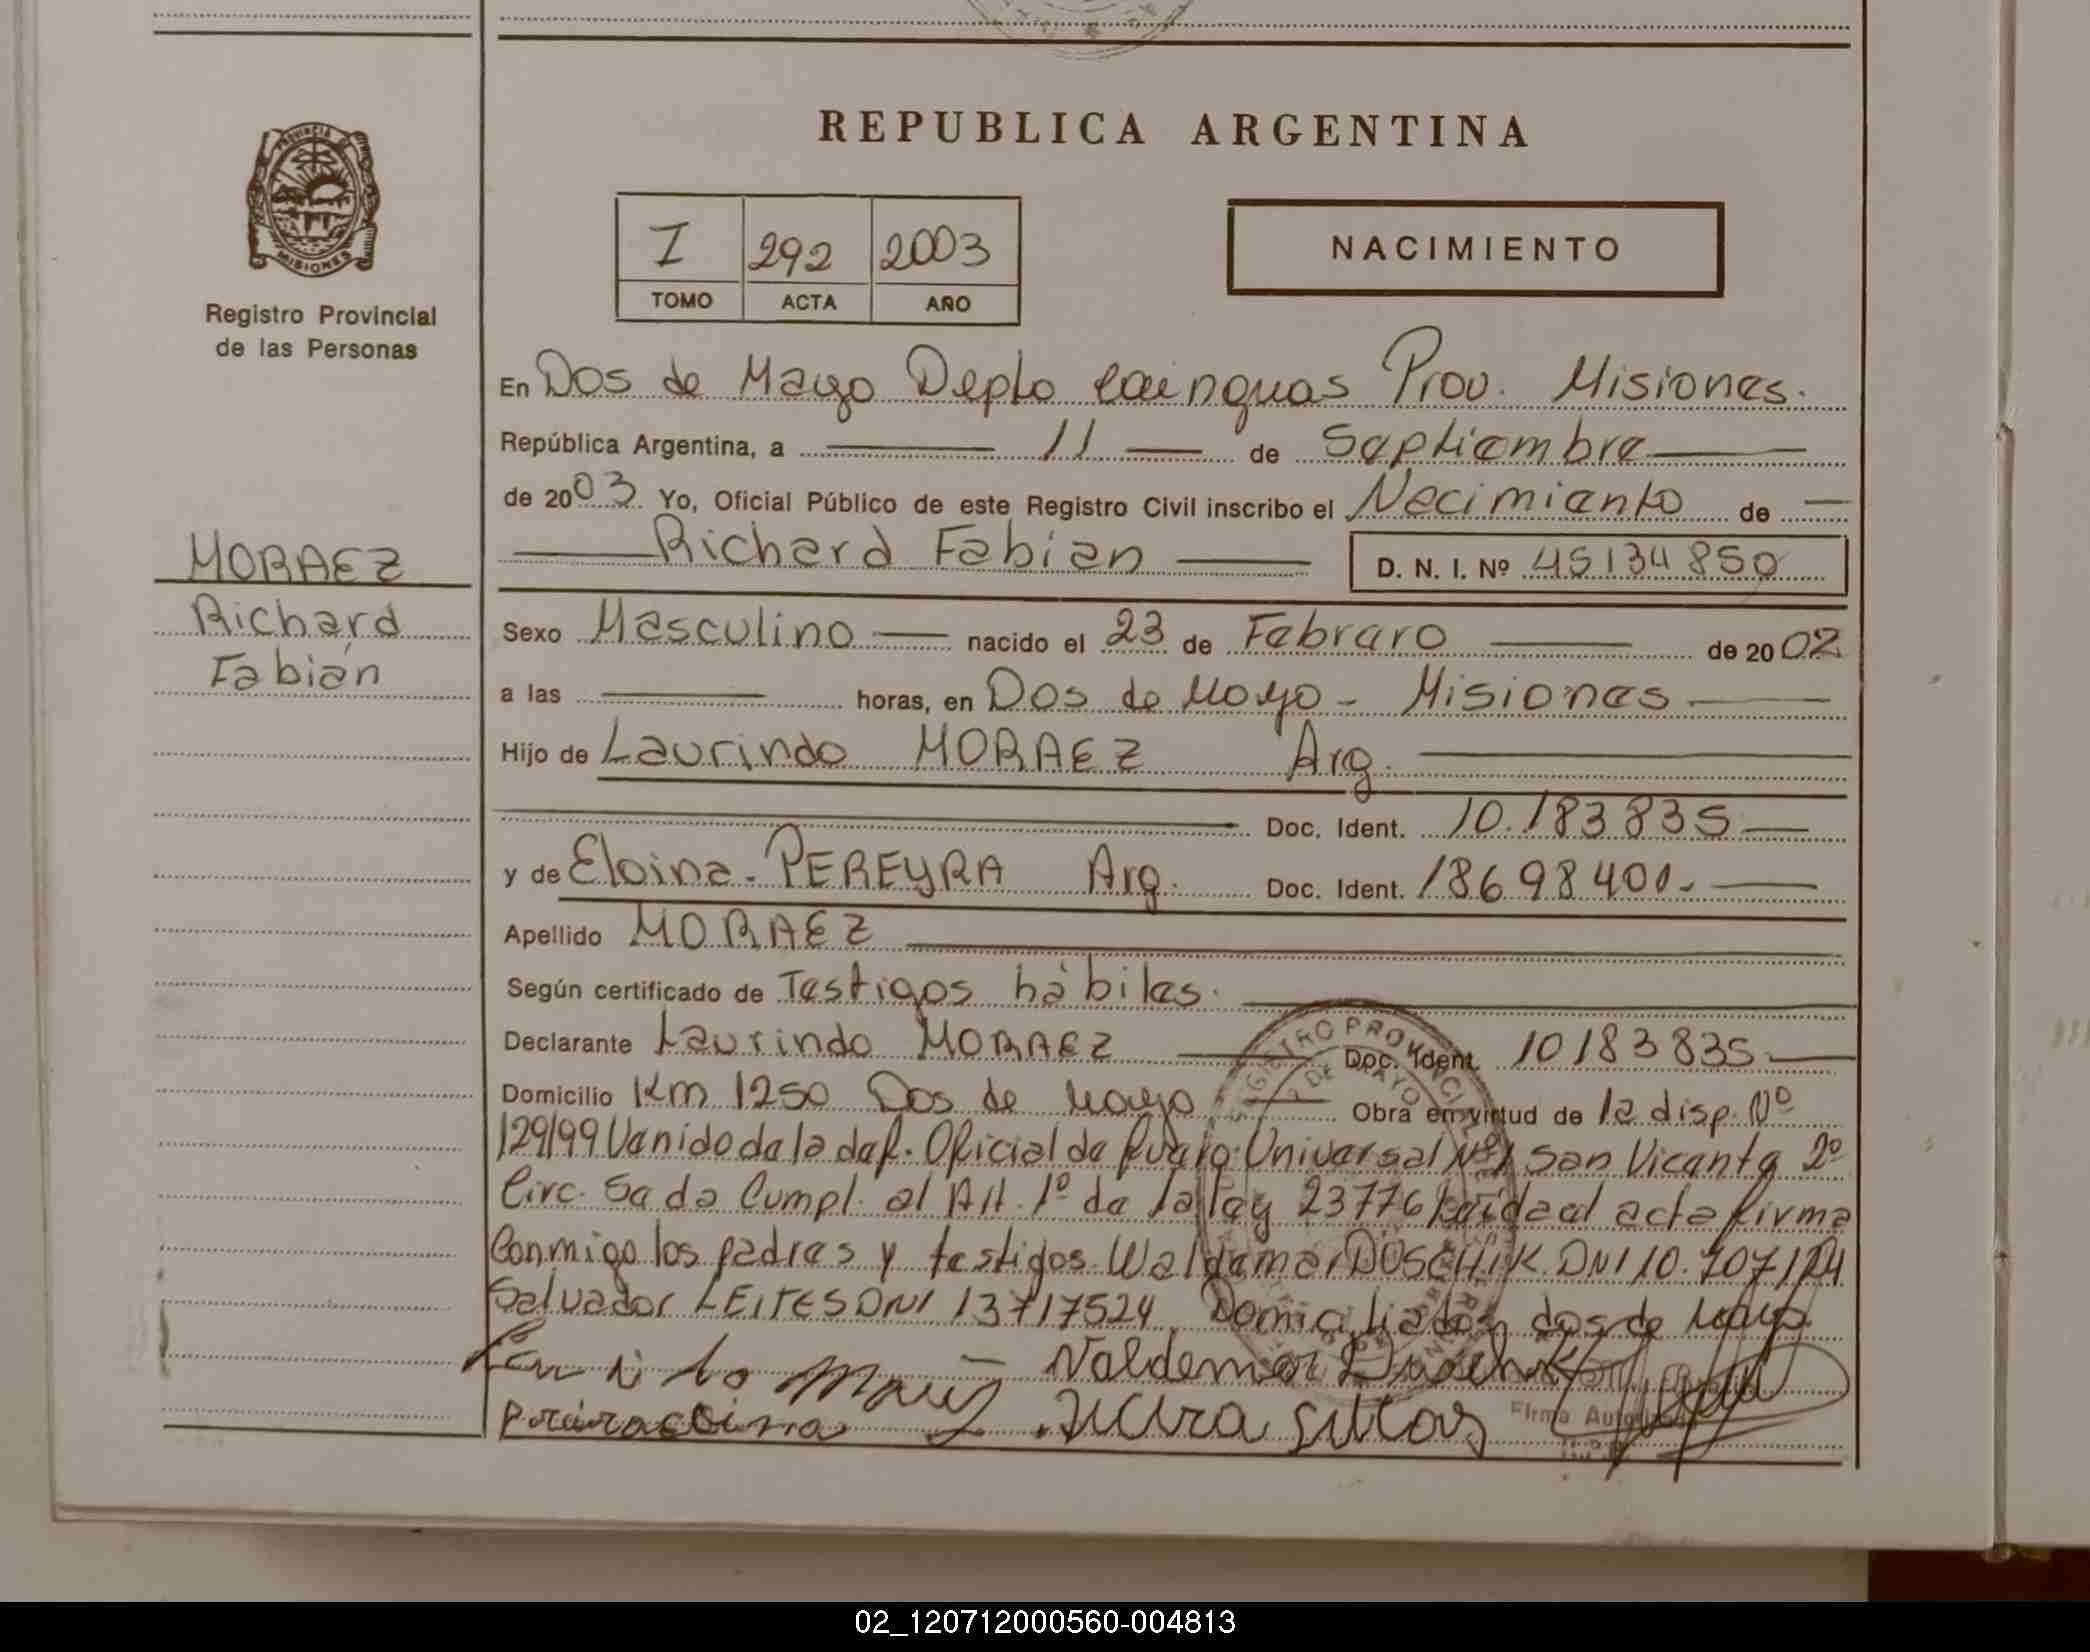 REPUBLICA ARGENTINA
PROVINCIA
MISIONES
Registro Provincial
de las Personas
I 292 2003
TOMO ACTA AÑO
NACIMIENTO
MORAEZ
Richard
Fabián
En Dos de Mayo Depto Cainguas Prov. Misiones.
República Argentina, a 11 de Septiembre
de 2003 Yo, Oficial Público de este Registro Civil inscribo el Nacimiento de
Richard Fabian D. N. I. Nº 45134850
Sexo Masculino nacido el 23 de Febrero de 2002
a las horas, en Dos de Mayo - Misiones
Hijo de Laurindo MORAEZ Arg.
Doc. Ident. 10.183835
y de Eloina - PEREYRA Arg. Doc. Ident. 18698401.
Apellido MORAEZ
Según certificado de Testigos hábiles.
Declarante Laurindo MORAEZ Doc. Ident. 10183835
Domicilio Km 1250 Dos de Mayo Obra en virtud de la disp. Nº
129/99 Venido de la def. Oficial de fuero Universal Nº1 San Vicente 2º
Circ. Sa do Cumpl. al Art. 1º de la ley 23776 leída el acta firma
Conmigo los padres y testigos Waldemar DUSCHIK DNI 10.707124
Salvador LEITES DNI 13717524 Domiciliados dos de Mayo.
Valdemar Duschik
Firma
REGISTRO PROVINCIAL
2 DE MAYO
02_120712000560-004813